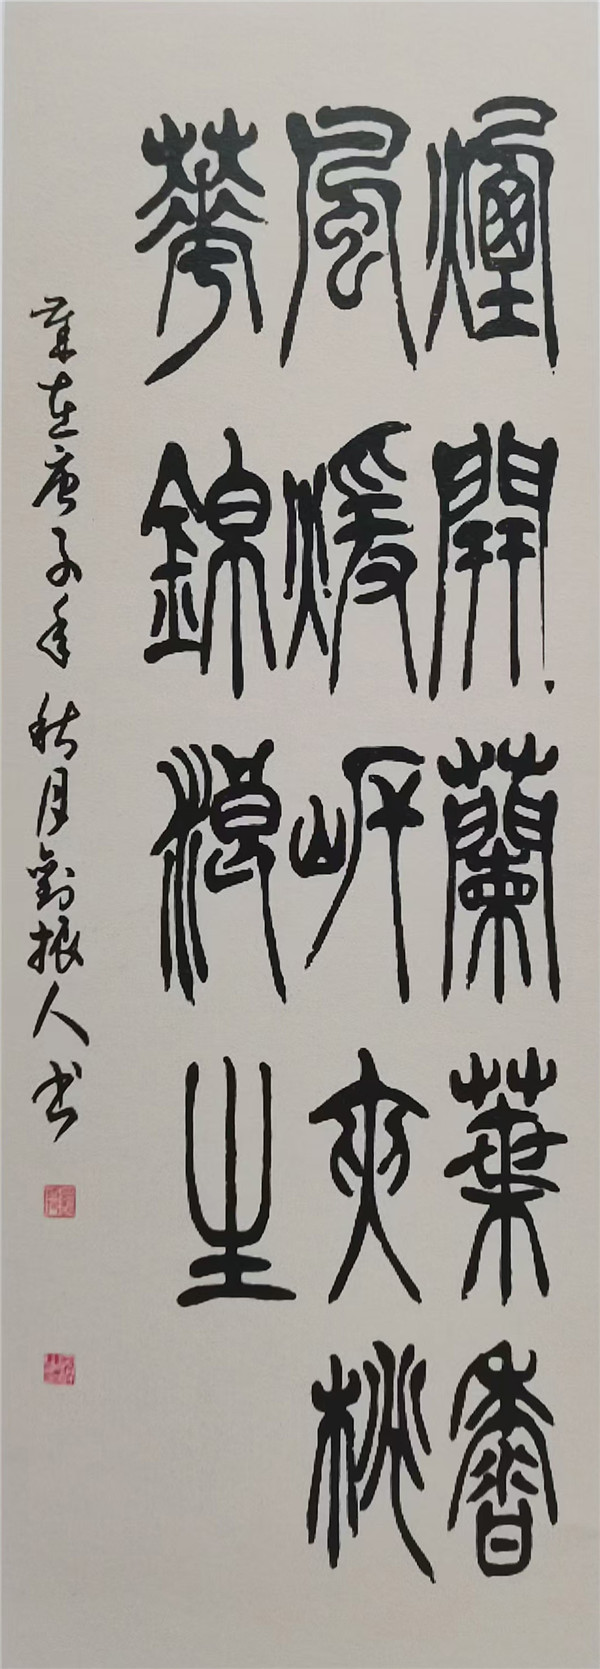 煙開蘭葉香
風暖岸夾桃
華錦浪生
歲在庚子年秋月劉振人书